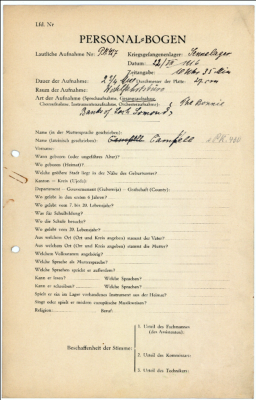 Lfd. Nr
PERSONAL-BOGEN
Lautliche Aufnahme Nr.: PK 747 Kriegsgefangenenlager: Sennelager
Datum:
Zeitangabe: 10 Uhr 35 Min
Dauer der Aufnahme: 2 1/4 Min Durchmesser der Platte: 27 cm
Raum der Aufnahme:
Art der Aufnahme (Sprechaufnahme, Gesangsaufnahme,
Choraufnahme, Instrumentenaufnahme, Orchesteraufnahme): The Bonnie
Banks of Loch Lomond
Name (in der Muttersprache geschrieben):
Name (lateinisch geschrieben): Campbell PK 750
Vorname:
Wann geboren (oder ungefähres Alter)?
Wo geboren (Heimat)?
Welche größere Stadt liegt in der Nähe des Geburtsortes?
Kanton — Kreis (Ujedsd):
Departement — Gouvernement (Gubernija) — Grafschaft (County):
Wo gelebt in den ersten 6 Jahren?
Wo gelebt vom 7. bis 20. Lebensjahr?
Was für Schulbildung?
Wo die Schule besucht?
Wo gelebt vom 20. Lebensjahr?
Aus welchem Ort (Ort und Kreis angeben) stammt der Vater?
Aus welchem Ort (Ort und Kreis angeben) stammt die Mutter?
Welchem Volksstamm angehörig?
Welche Sprache als Muttersprache?
Welche Sprachen spricht er außerdem?
Kann er lesen? Welche Sprachen?
Kann er schreiben? Welche Sprachen?
Spielt er ein im Lager vorhandenes Instrument aus der Heimat?
Singt oder spielt er modern europäische Musikweisen?
Religion: Beruf:
Beschaffenheit der Stimme:
1. Urteil des Fachmannes
(des Assistenten):
2. Urteil des Kommissars:
3. Urteil des Technikers: